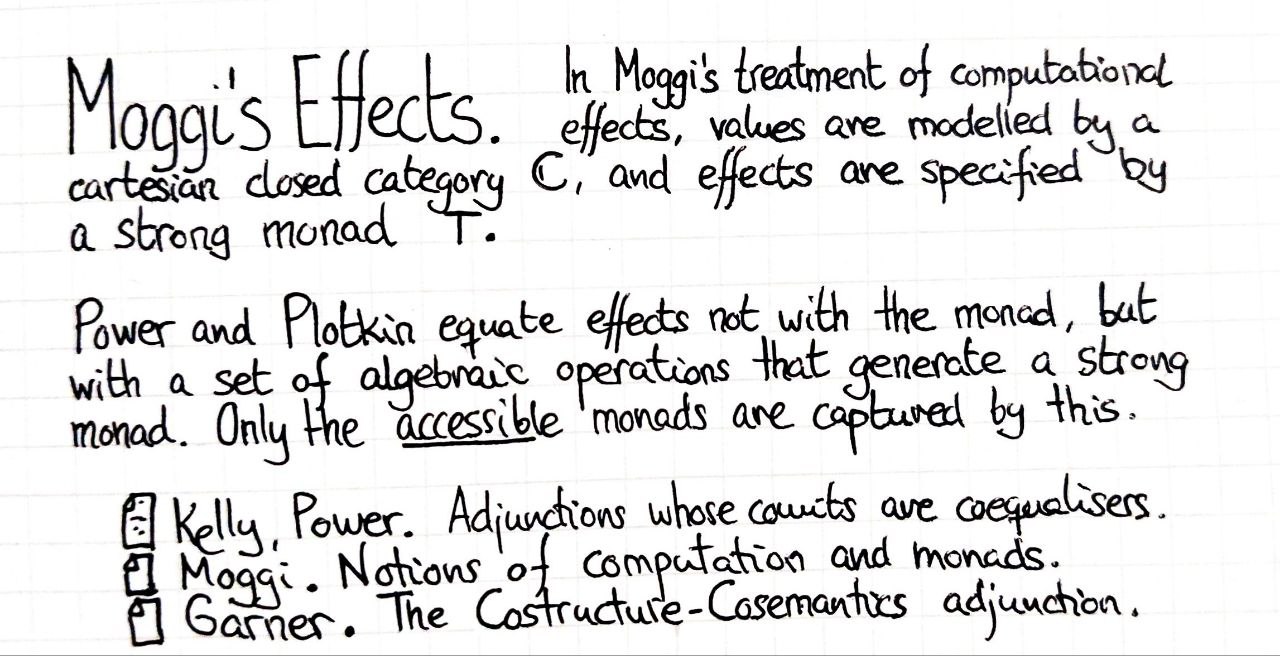 Moggi's Effects.
In Moggi's treatment of computational
effects, values are modelled by a
cartesian closed category ℂ, and effects are specified by
a strong monad T.
Power and Plotkin equate effects not with the monad, but
with a set of algebraic operations that generate a strong
monad. Only the accessible monads are captured by this.
Kelly, Power. Adjunctions whose counits are coequalisers.
Moggi. Notions of computation and monads.
Garner. The Costructure-Cosemantics adjunction.